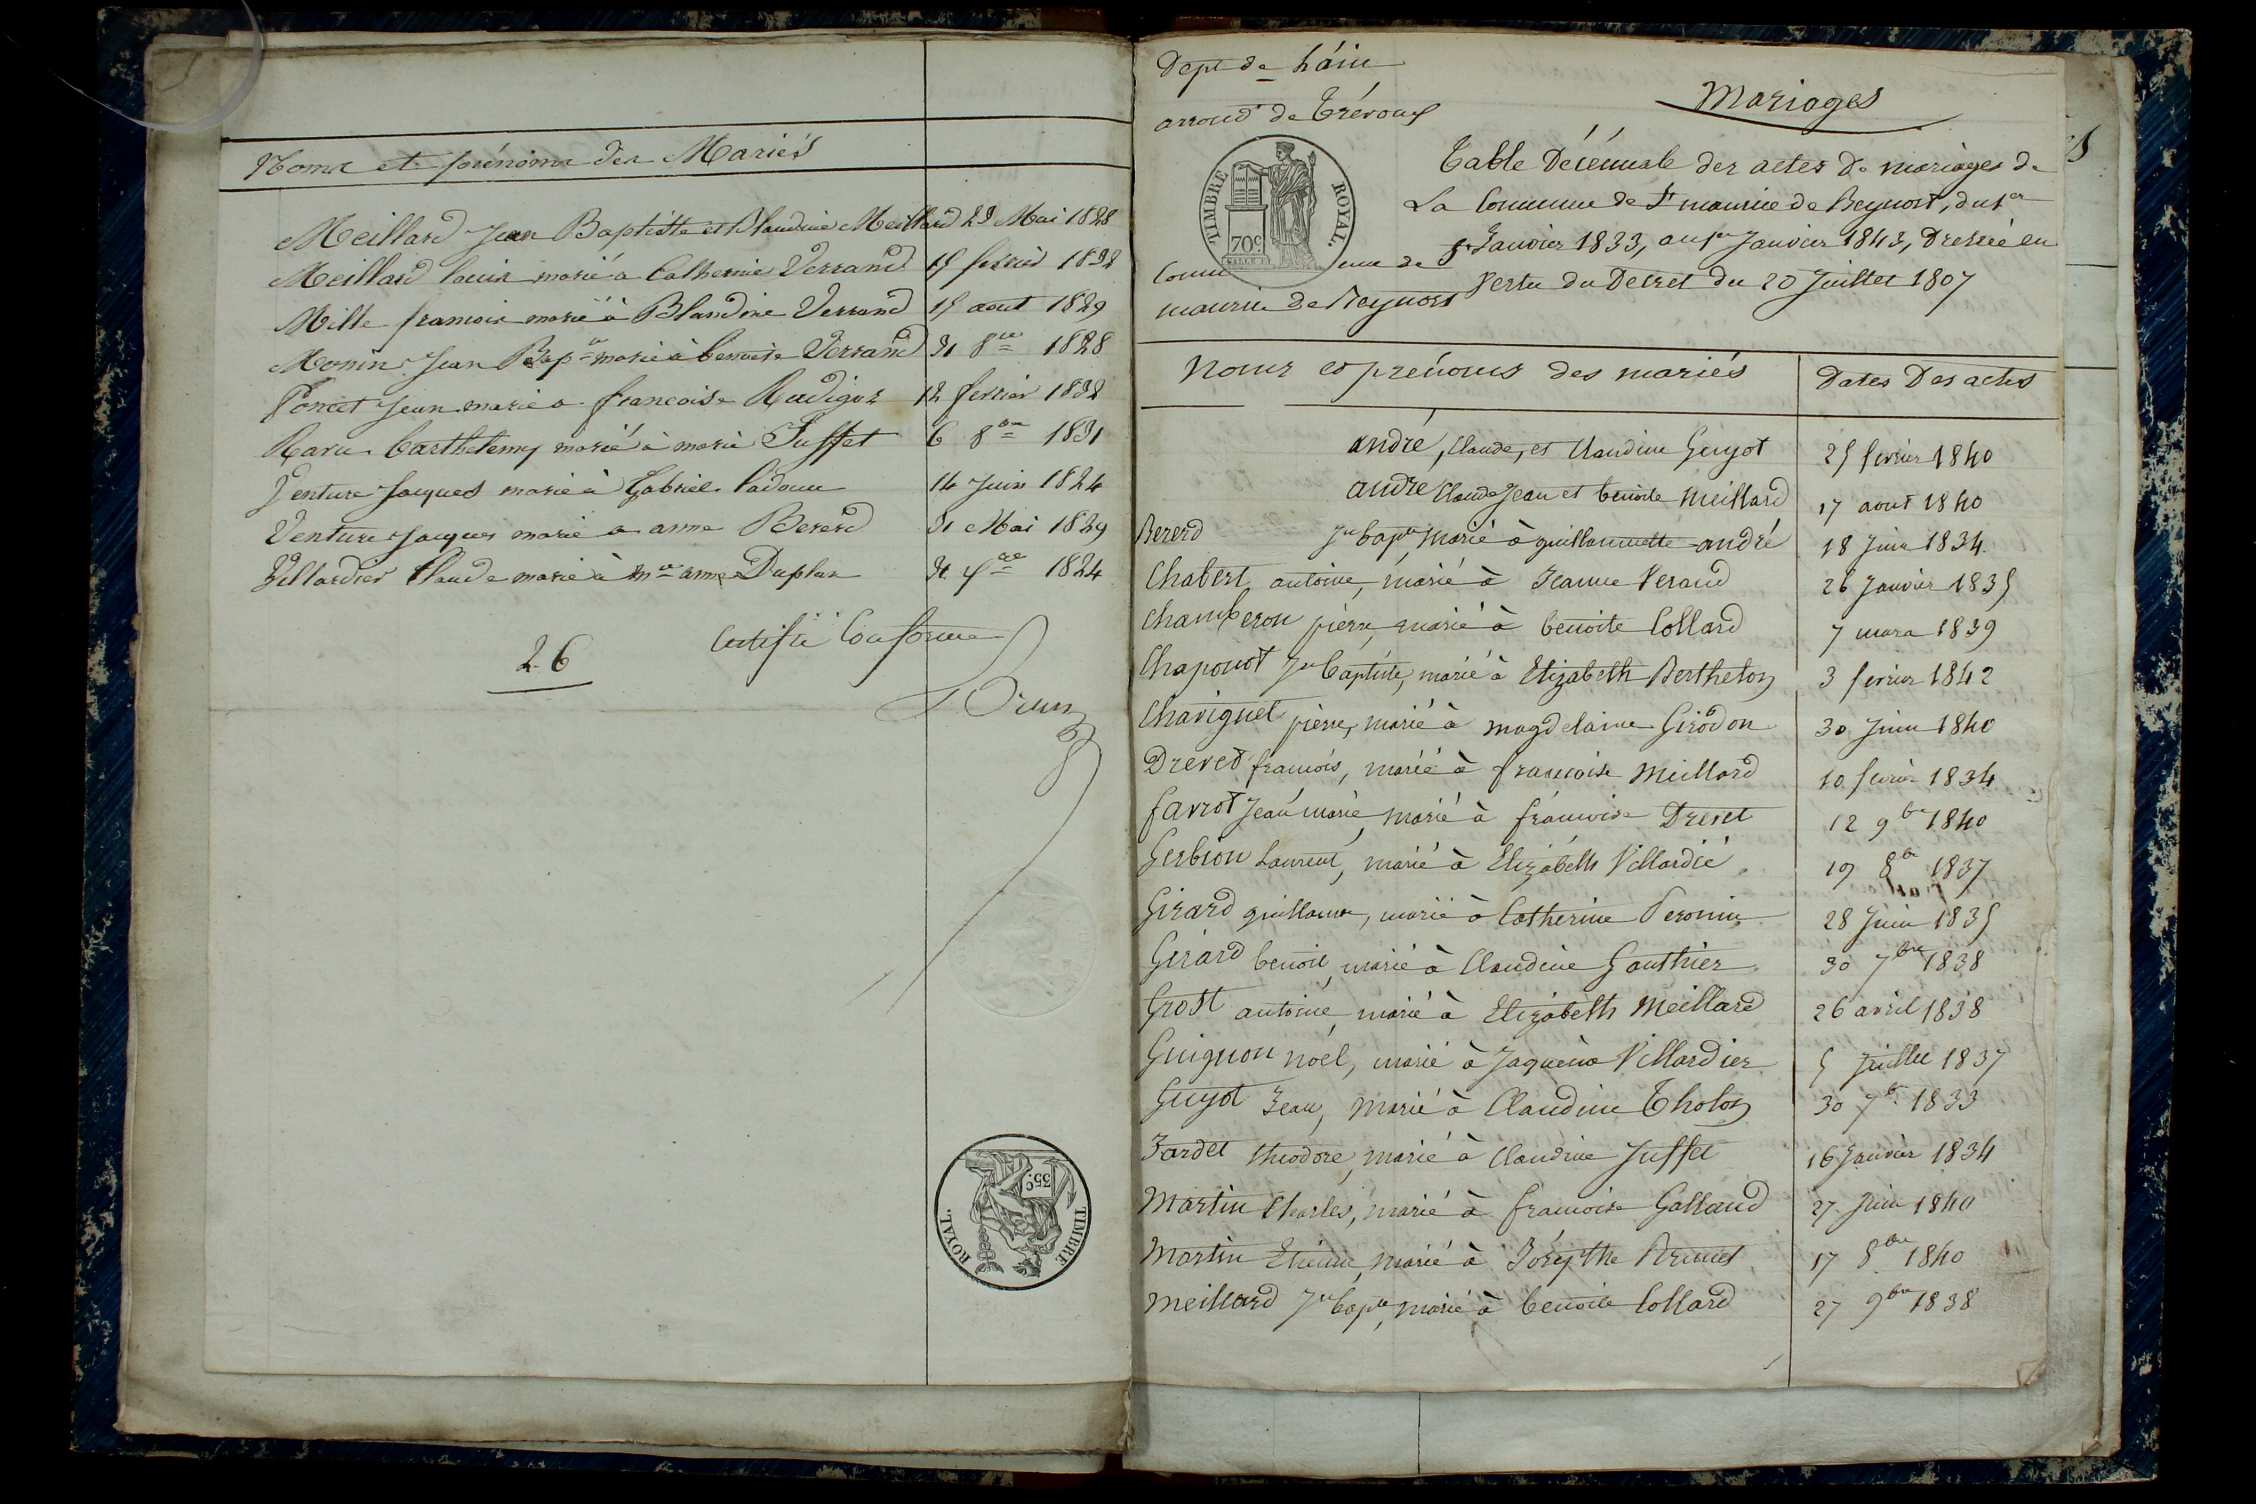 Noms et prénoms des Mariés
Meillard Jean Baptiste et Blandine Meillard 23 Mai 1828
Meillard louis marié à Catherine Verrand 15 fevrier 1832
Mille francois marié à Blandine Verrand 15 aout 1829
Monin Jean Bap.te marié à benoite Verrand 31 8bre 1828
Poncet Jean marié a francoise Rudigoz 12 fevrier 1832
Ravu barthelemy marié à marie Juffet 6 8bre 1831
Venture Jacques marié à Gabriel 14 Juin 1824
Venture Jacques marié a anne Bererd 31 Mai 1829
Villardier Claude marié à Mie anne Duplan 1824
26
Certifié Conforme
Dept de L'ain
arrond.t de Trévoux
Mariages
TIMBRE ROYAL.
70c
Table Décénnale des actes de mariages de
La Commune de St maurice de Beynost, du 1er
Janvier 1833, au 1er Janvier 1843, Dressée en
Vertu du Decret du 20 Juillet 1807
Commune de St
maurice de Beynost
Noms et prénoms des mariés
Dates Des actes
andré, Claude, et Claudine Guyot 25 fevrier 1840
andré Claude Jean et benoite Meillard 17 aout 1840
Bererd Jn bapte, marié à guillaumette andré 18 Juin 1834
Chabert antoine, marié à Jeanne Verand 26 Janvier 1835
Chamberon pierre, marié à benoite Collard 7 mars 1839
Chaponot Jn baptiste, marié à Elizabeth Bertholon 3 fevrier 1842
Chavignet pierre, marié à magdelaine Girodon 30 Juin 1840
Drevet francois, marié à francoise Meillard 10 fevrier 1834
favrot Jean marie, marié à francoise Drevet 12 9bre 1840
Gerbion Laurent, marié à Elizabeth Villardié 19 8bre 1837
Girard guillaume, marié à Catherine Peronin 28 Juin 1835
Girard benoit, marié à Claudine Gauthier 30 7bre 1838
Grost antoine, marié à Elizabeth Meillard 26 avril 1838
Guignon noël, marié à Jaquêma Villardier 5 Juillet 1837
Guyot Jean, marié à Claudine Tholon 30 7bre 1833
Jardet théodore, marié à Claudine Juffet 16 Janvier 1834
Martin Charles, marié à francoise Galland 27 Juin 1840
Martin Etienne, marié à Josephte Brunet 17 8bre 1840
Meillard Jn bapte, marié à benoite Collard 27 9bre 1838
TIMBRE ROYAL.
35c